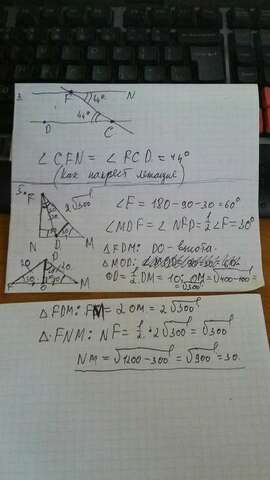 3.
F N
44°
44°
D C
∠ CFN = ∠ FCD = 44°
(как накрест лежащие)
5.
F 2√300
N D M
∠F = 180-90-30 = 60°
∠MDF = ∠ NFD = 1/2 ∠F = 30°
△ FDM: DO - высота.
△ MOD:
OD = 1/2 DM = 10; OM = √400-100 =
= √300
F O M
△ FDM: FM = 2 OM = 2√300
△ FNM: NF = 1/2 · 2√300 = √300
NM = √1200-300 = √900 = 30.